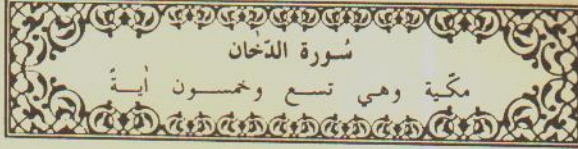 سُورة الدّخان
مكّية وهي تسع وخمسون أيةً